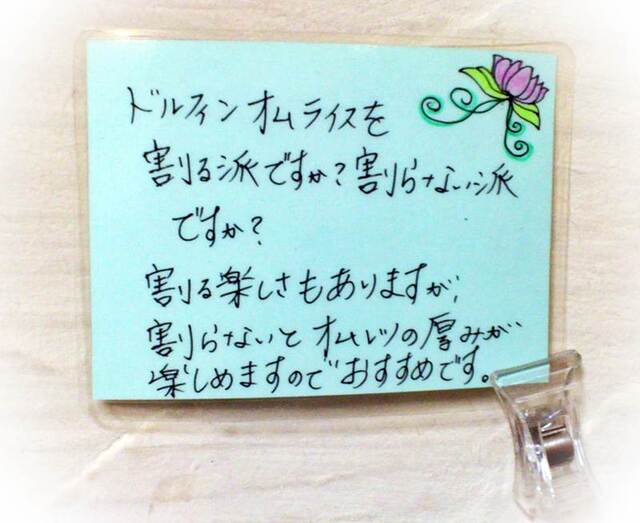 ドルフィンオムライスを
割る派ですか?割らない派
ですか?
割る楽しさもありますが、
割らないとオムレツの厚みが
楽しめますのでおすすめです。